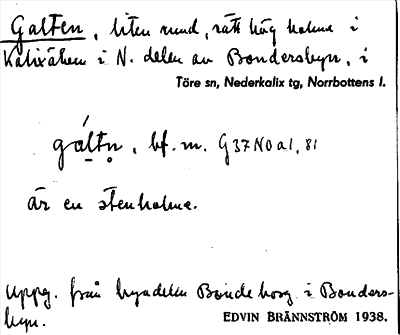 Galten, liten rund, rätt hög holme i
Kalixälven i N. delen av Bondersbyn, i
Töre sn, Nederkalix tg, Norrbottens l.
gáltn̥, bf. m. G37NOa1,81
är en stenholme.
Uppg. från byadelen Bondeborg i Bonders-
byn.
EDVIN BRÄNNSTRÖM 1938.